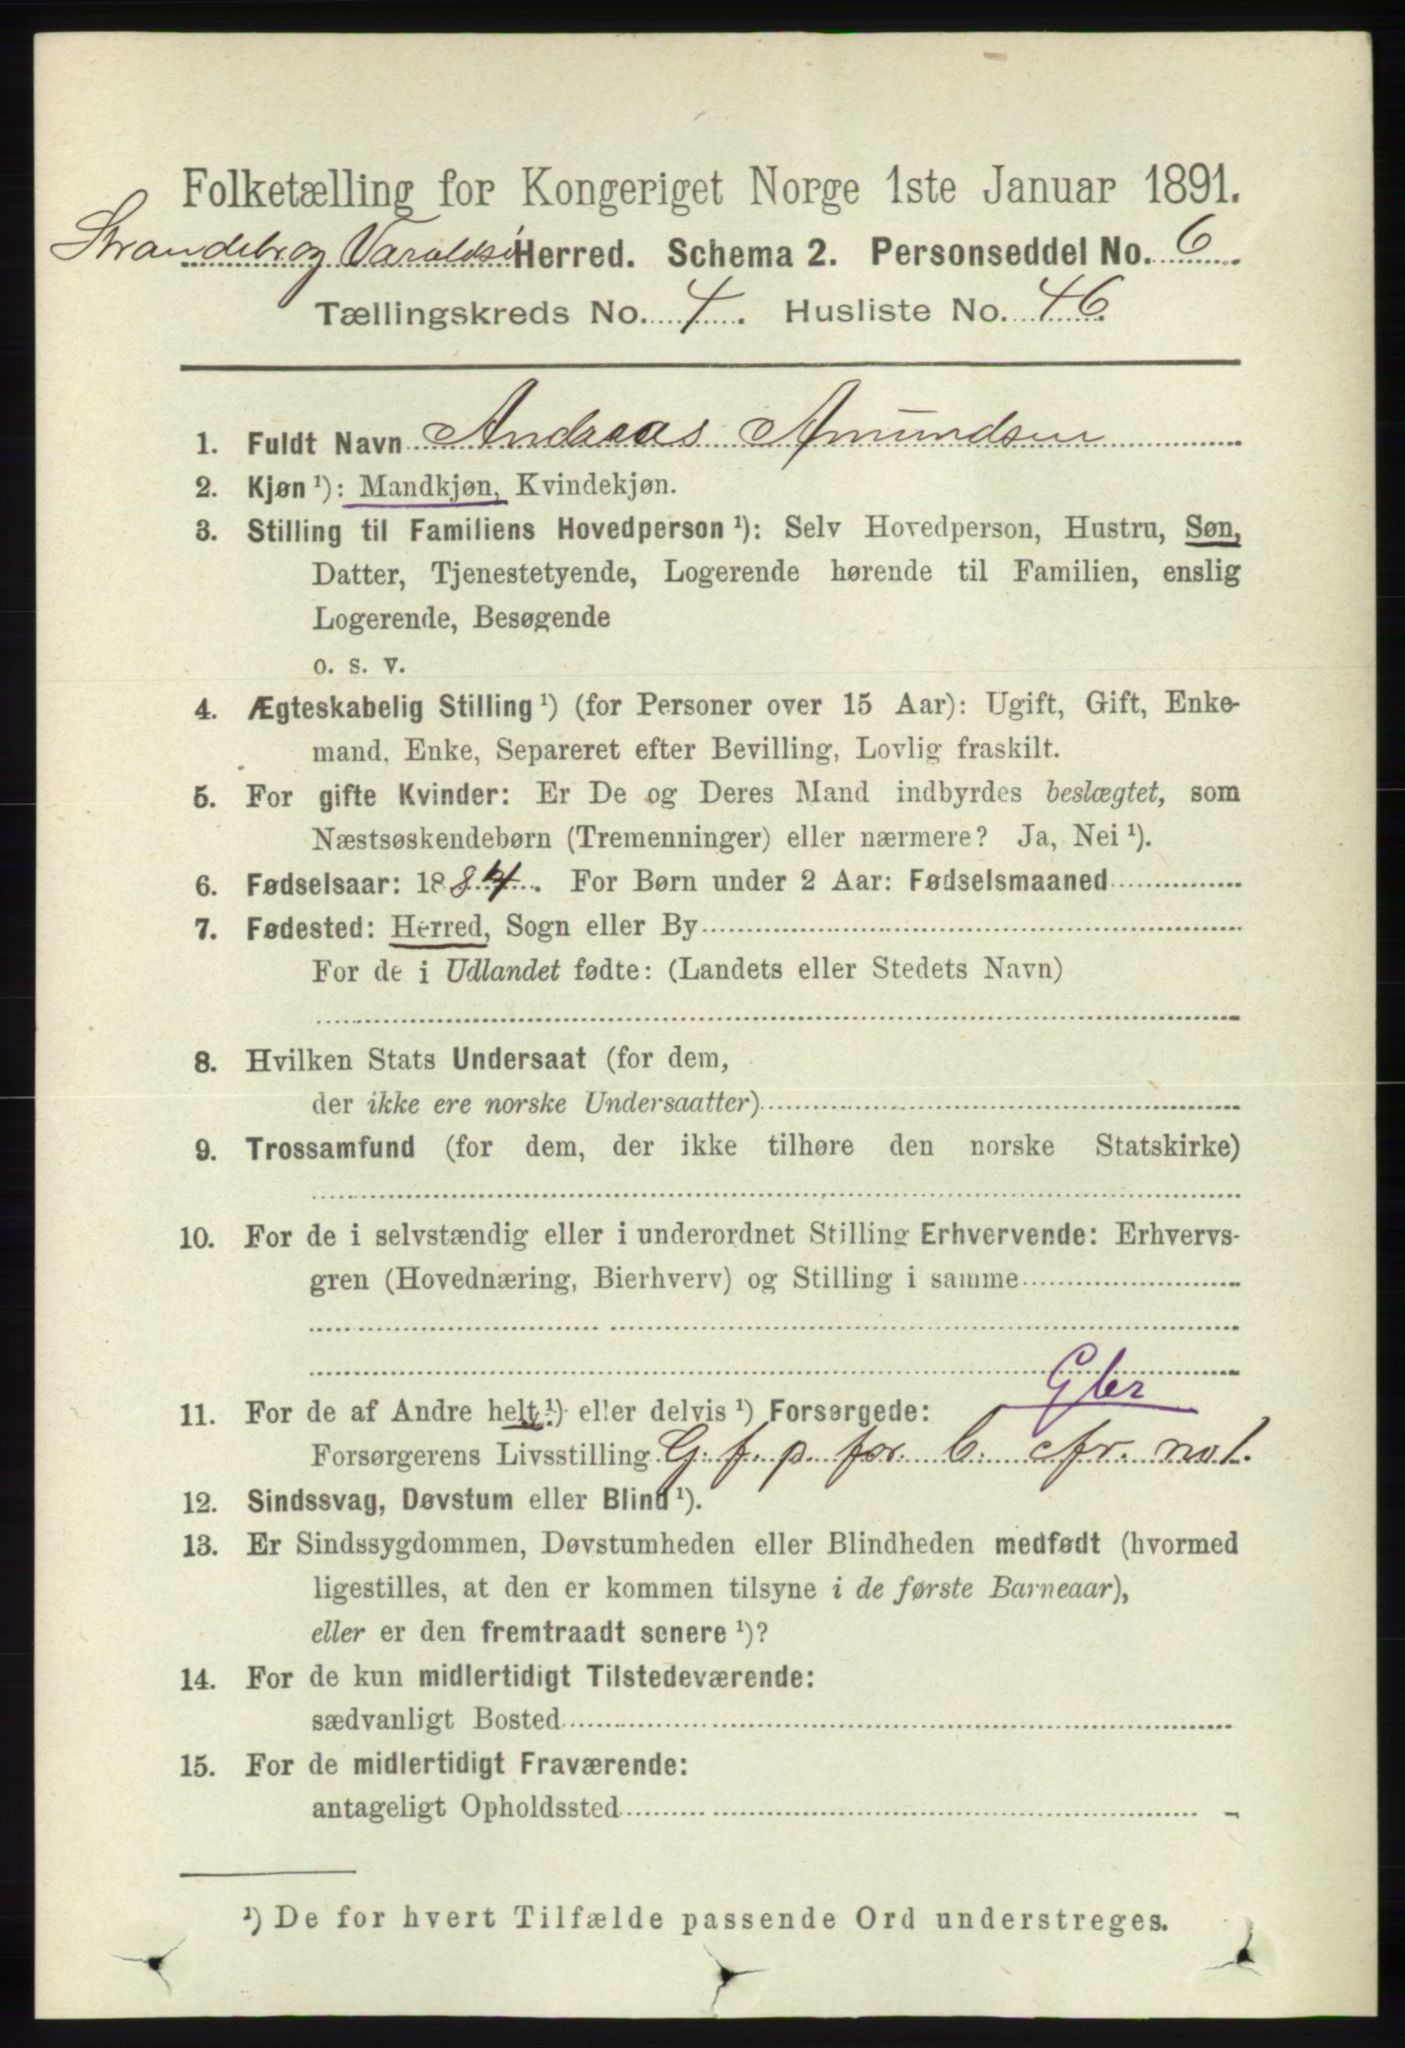 Folketælling for Kongeriget Norge 1ste Januar 1891.
Strandeb og Varaldsö Herred. Schema 2. Personseddel No. 6
Tællingskreds No. 4. Husliste No. 46
1. Fuldt Navn Andreas Amundsen
2. Kjøn ¹): Mandkjøn, Kvindekjøn.
3. Stilling til Familiens Hovedperson ¹): Selv Hovedperson, Hustru, Søn,
Datter, Tjenestetyende, Logerende hørende til Familien, enslig
Logerende, Besøgende
o. s. v.
4. Ægteskabelig Stilling ¹) (for Personer over 15 Aar): Ugift, Gift, Enke-
mand, Enke, Separeret efter Bevilling, Lovlig fraskilt.
5. For gifte Kvinder: Er De og Deres Mand indbyrdes beslægtet, som
Næstsøskendebørn (Tremenninger) eller nærmere? Ja, Nei ¹).
6. Fødselsaar: 1884. For Børn under 2 Aar: Fødselsmaaned
7. Fødested: Herred, Sogn eller By
For de i Udlandet fødte: (Landets eller Stedets Navn)
8. Hvilken Stats Undersaat (for dem,
der ikke ere norske Undersaatter)
9. Trossamfund (for dem, der ikke tilhøre den norske Statskirke)
10. For de i selvstændig eller i underordnet Stilling Erhvervende: Erhvervs-
gren (Hovednæring, Bierhverv) og Stilling i samme
Gbr
11. For de af Andre helt ¹) eller delvis ¹) Forsørgede:
Forsørgerens Livsstilling G. f. p. for. b. cfr. no 1.
12. Sindssvag, Døvstum eller Blind ¹).
13. Er Sindssygdommen, Døvstumheden eller Blindheden medfødt (hvormed
ligestilles, at den er kommen tilsyne i de første Barneaar),
eller er den fremtraadt senere ¹)?
14. For de kun midlertidigt Tilstedeværende:
sædvanligt Bosted
15. For de midlertidigt Fraværende:
antageligt Opholdssted
¹) De for hvert Tilfælde passende Ord understreges.